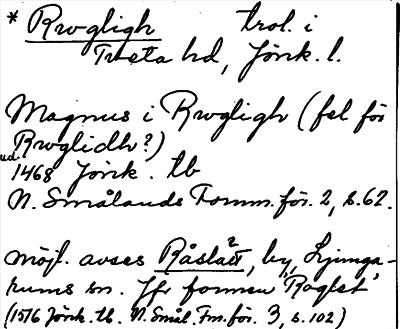 * Rwgligh trol. i
Tveta hd, Jönk. l.
Magnus i Rwgligh (fel för
Rwglidh?)
ud. 1468 Jönk. tb
N. Smålands Fornm. för. 2, s. 62.
möjl. avses Råslätt, by, Ljunga-
rums sn. Jfr formen "Roglet"
(1576 Jönk. tb. N. Smål. Fm. för. 3, s. 102)